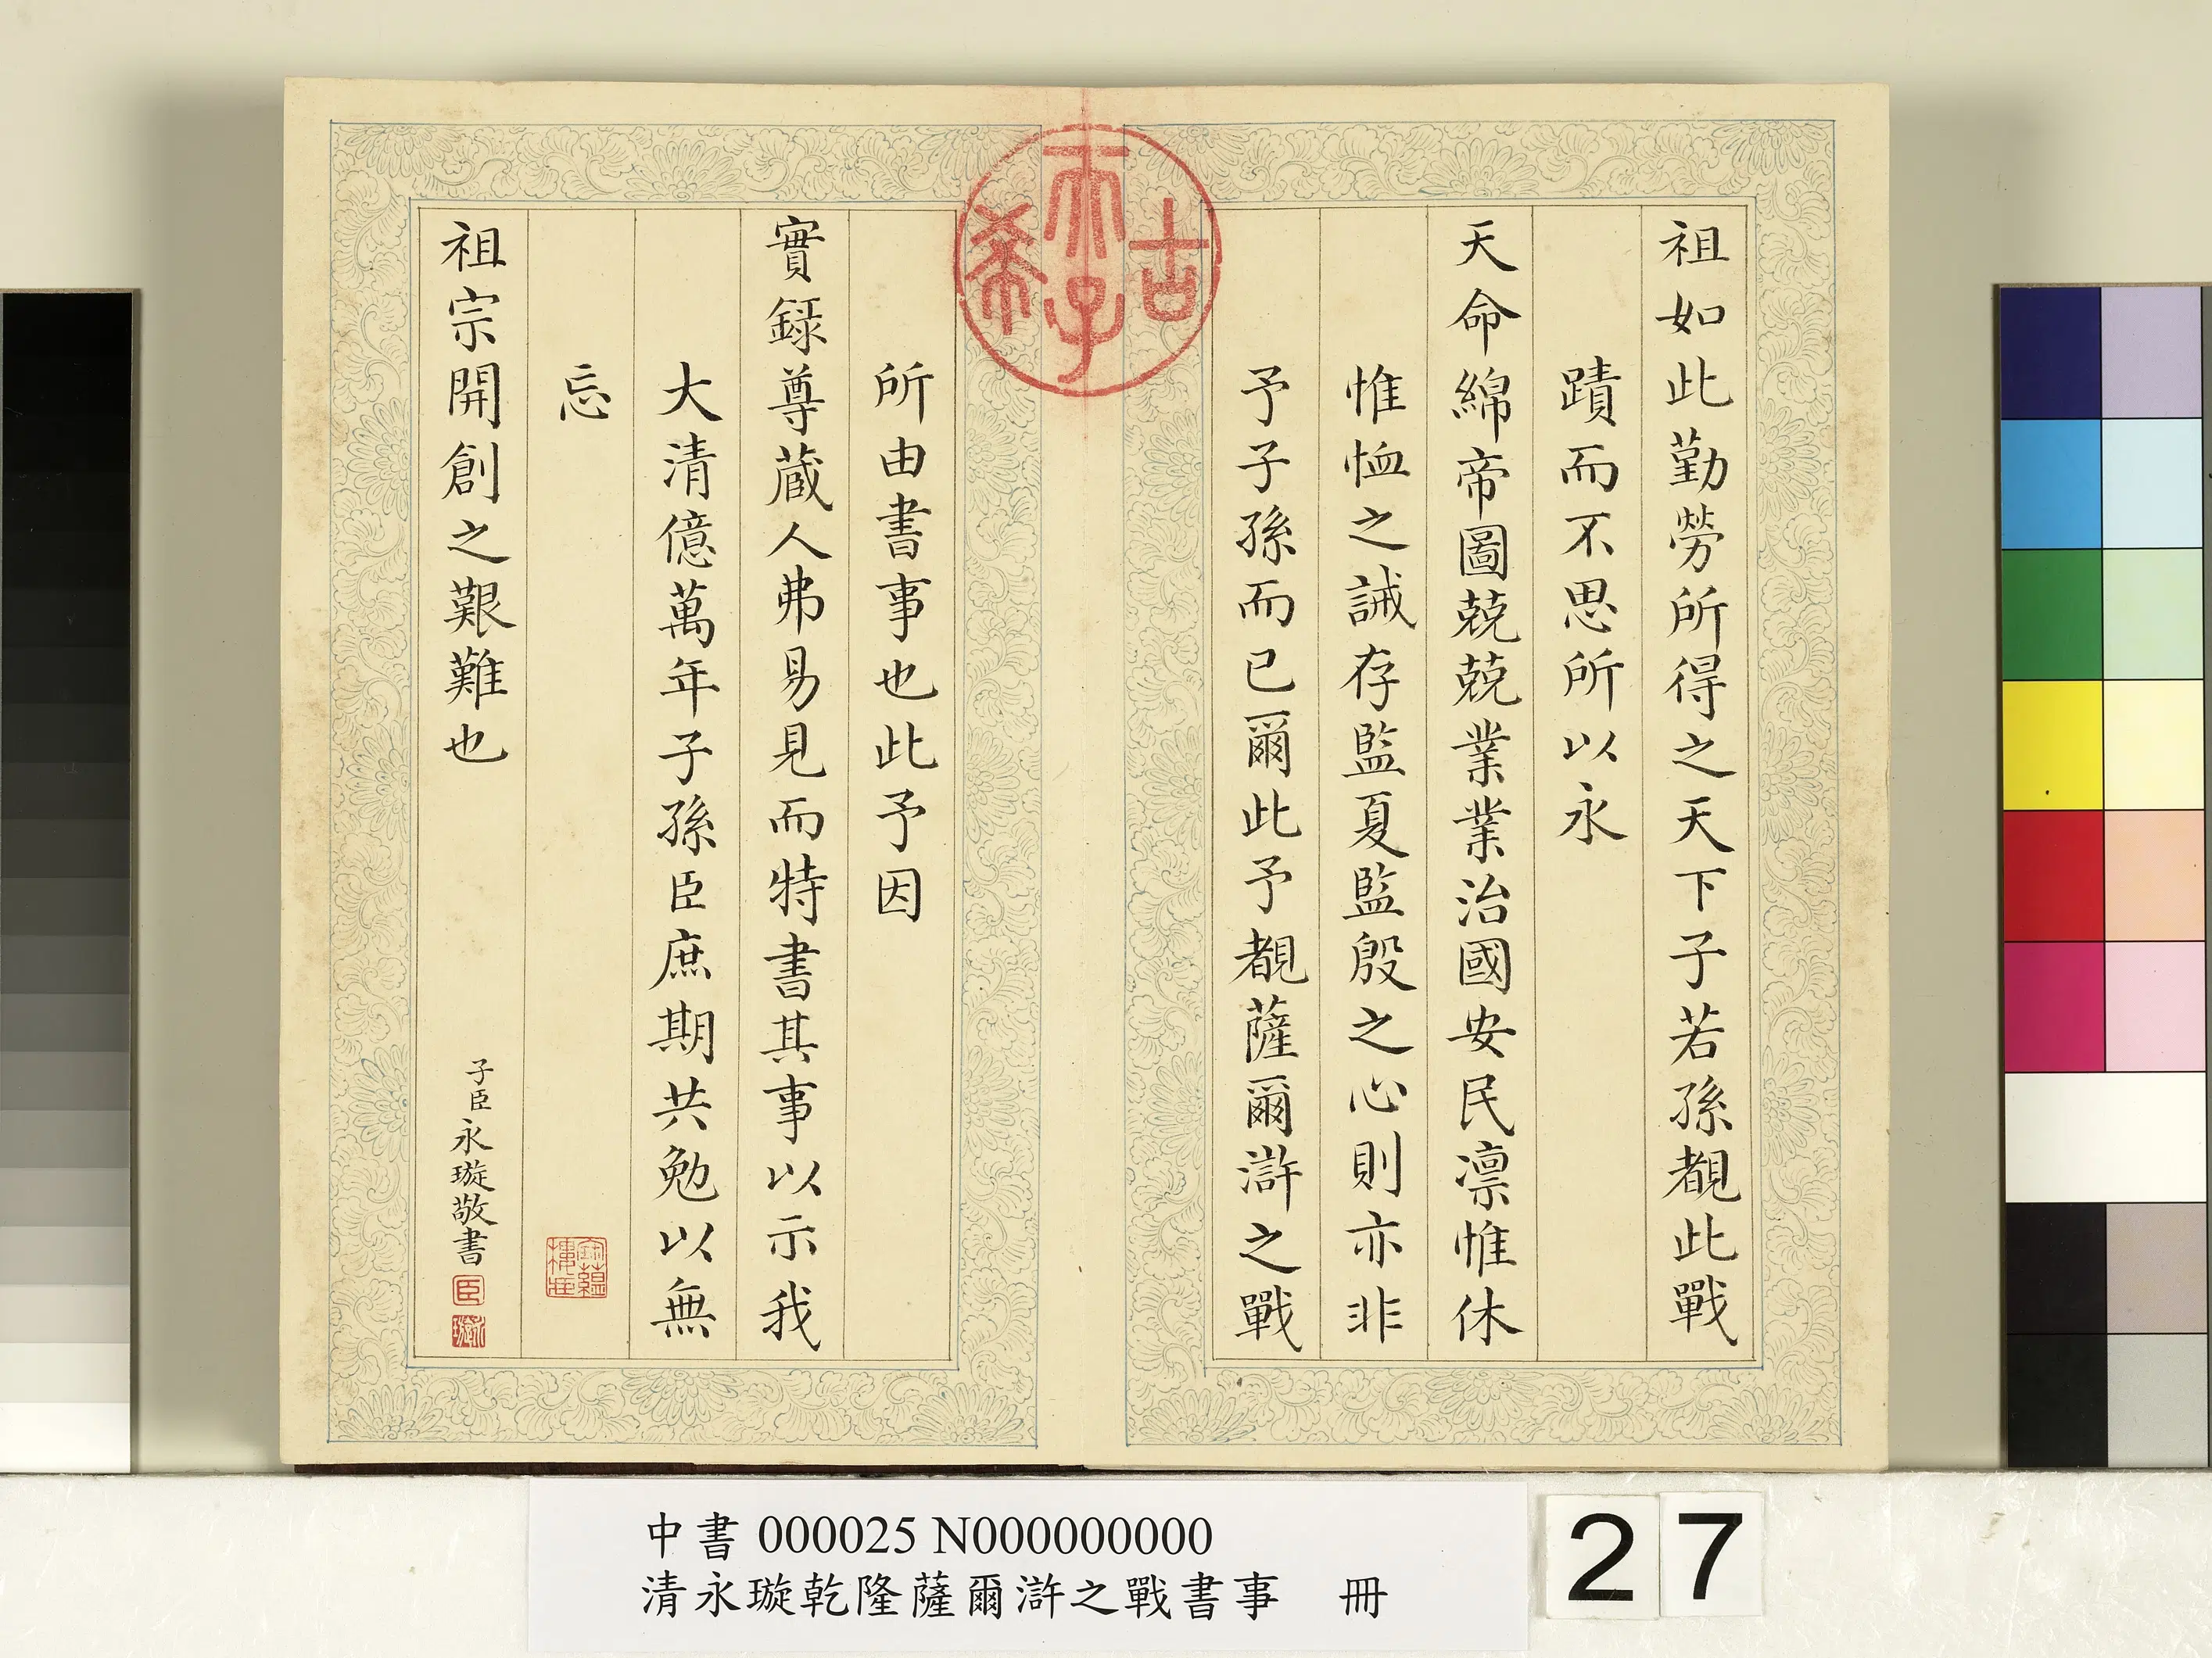 祖如此勤勞所得之天下子若孫覩此戰
蹟而不思所以永
天命綿帝圖兢兢業業治國安民凛惟休
惟恤之誡存監夏監殷之心則亦非
予子孫而已爾此予覩薩爾滸之戰
所由書事也此予因
實録尊蔵人弗易見而特書其事以示我
大清億萬年子孫臣庶期共勉以無
忘
祖宗開創之艱難也
子臣永璇敬書
臣
永璇
古
天子
希
中書 000025 N000000000
清永璇乾隆薩爾滸之戰書事 冊
27